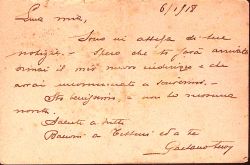 6/1/918
Lua mia,
Sono in attesa di tue
notizie. - Spero che ti sarà arrivato
ormai il mio nuovo indirizzo e che
avrai incominciato a scrivermi. -
Sto benissimo, e non ho nessuna
novità.
Saluti a tutti
Bacioni a            ed a te
Gaetano